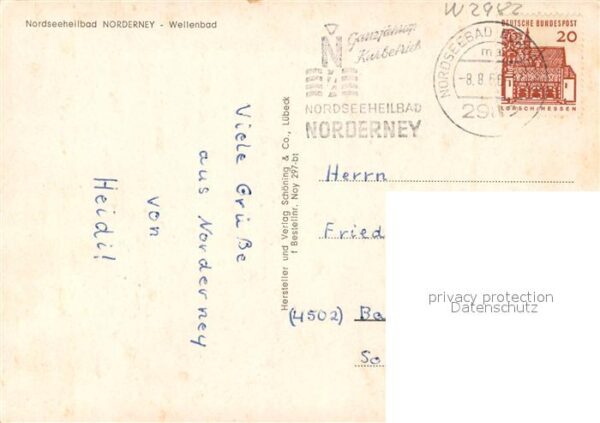 Nordseeheilbad NORDERNEY - Wellenbad
W2982
Ganzjährig
Kurbetrieb
N
NORDSEEHEILBAD
NORDERNEY
NORDSEEBAD
-8.8.
DEUTSCHE BUNDESPOST
20
LORSCH/HESSEN
Viele Grüße
aus Norderney
von
Heidi!
Hersteller und Verlag Schöning & Co., Lübeck
† Bestellnr. Noy 297-bt
Herrn
Fried
(4502) Ba
So
privacy protection
Datenschutz